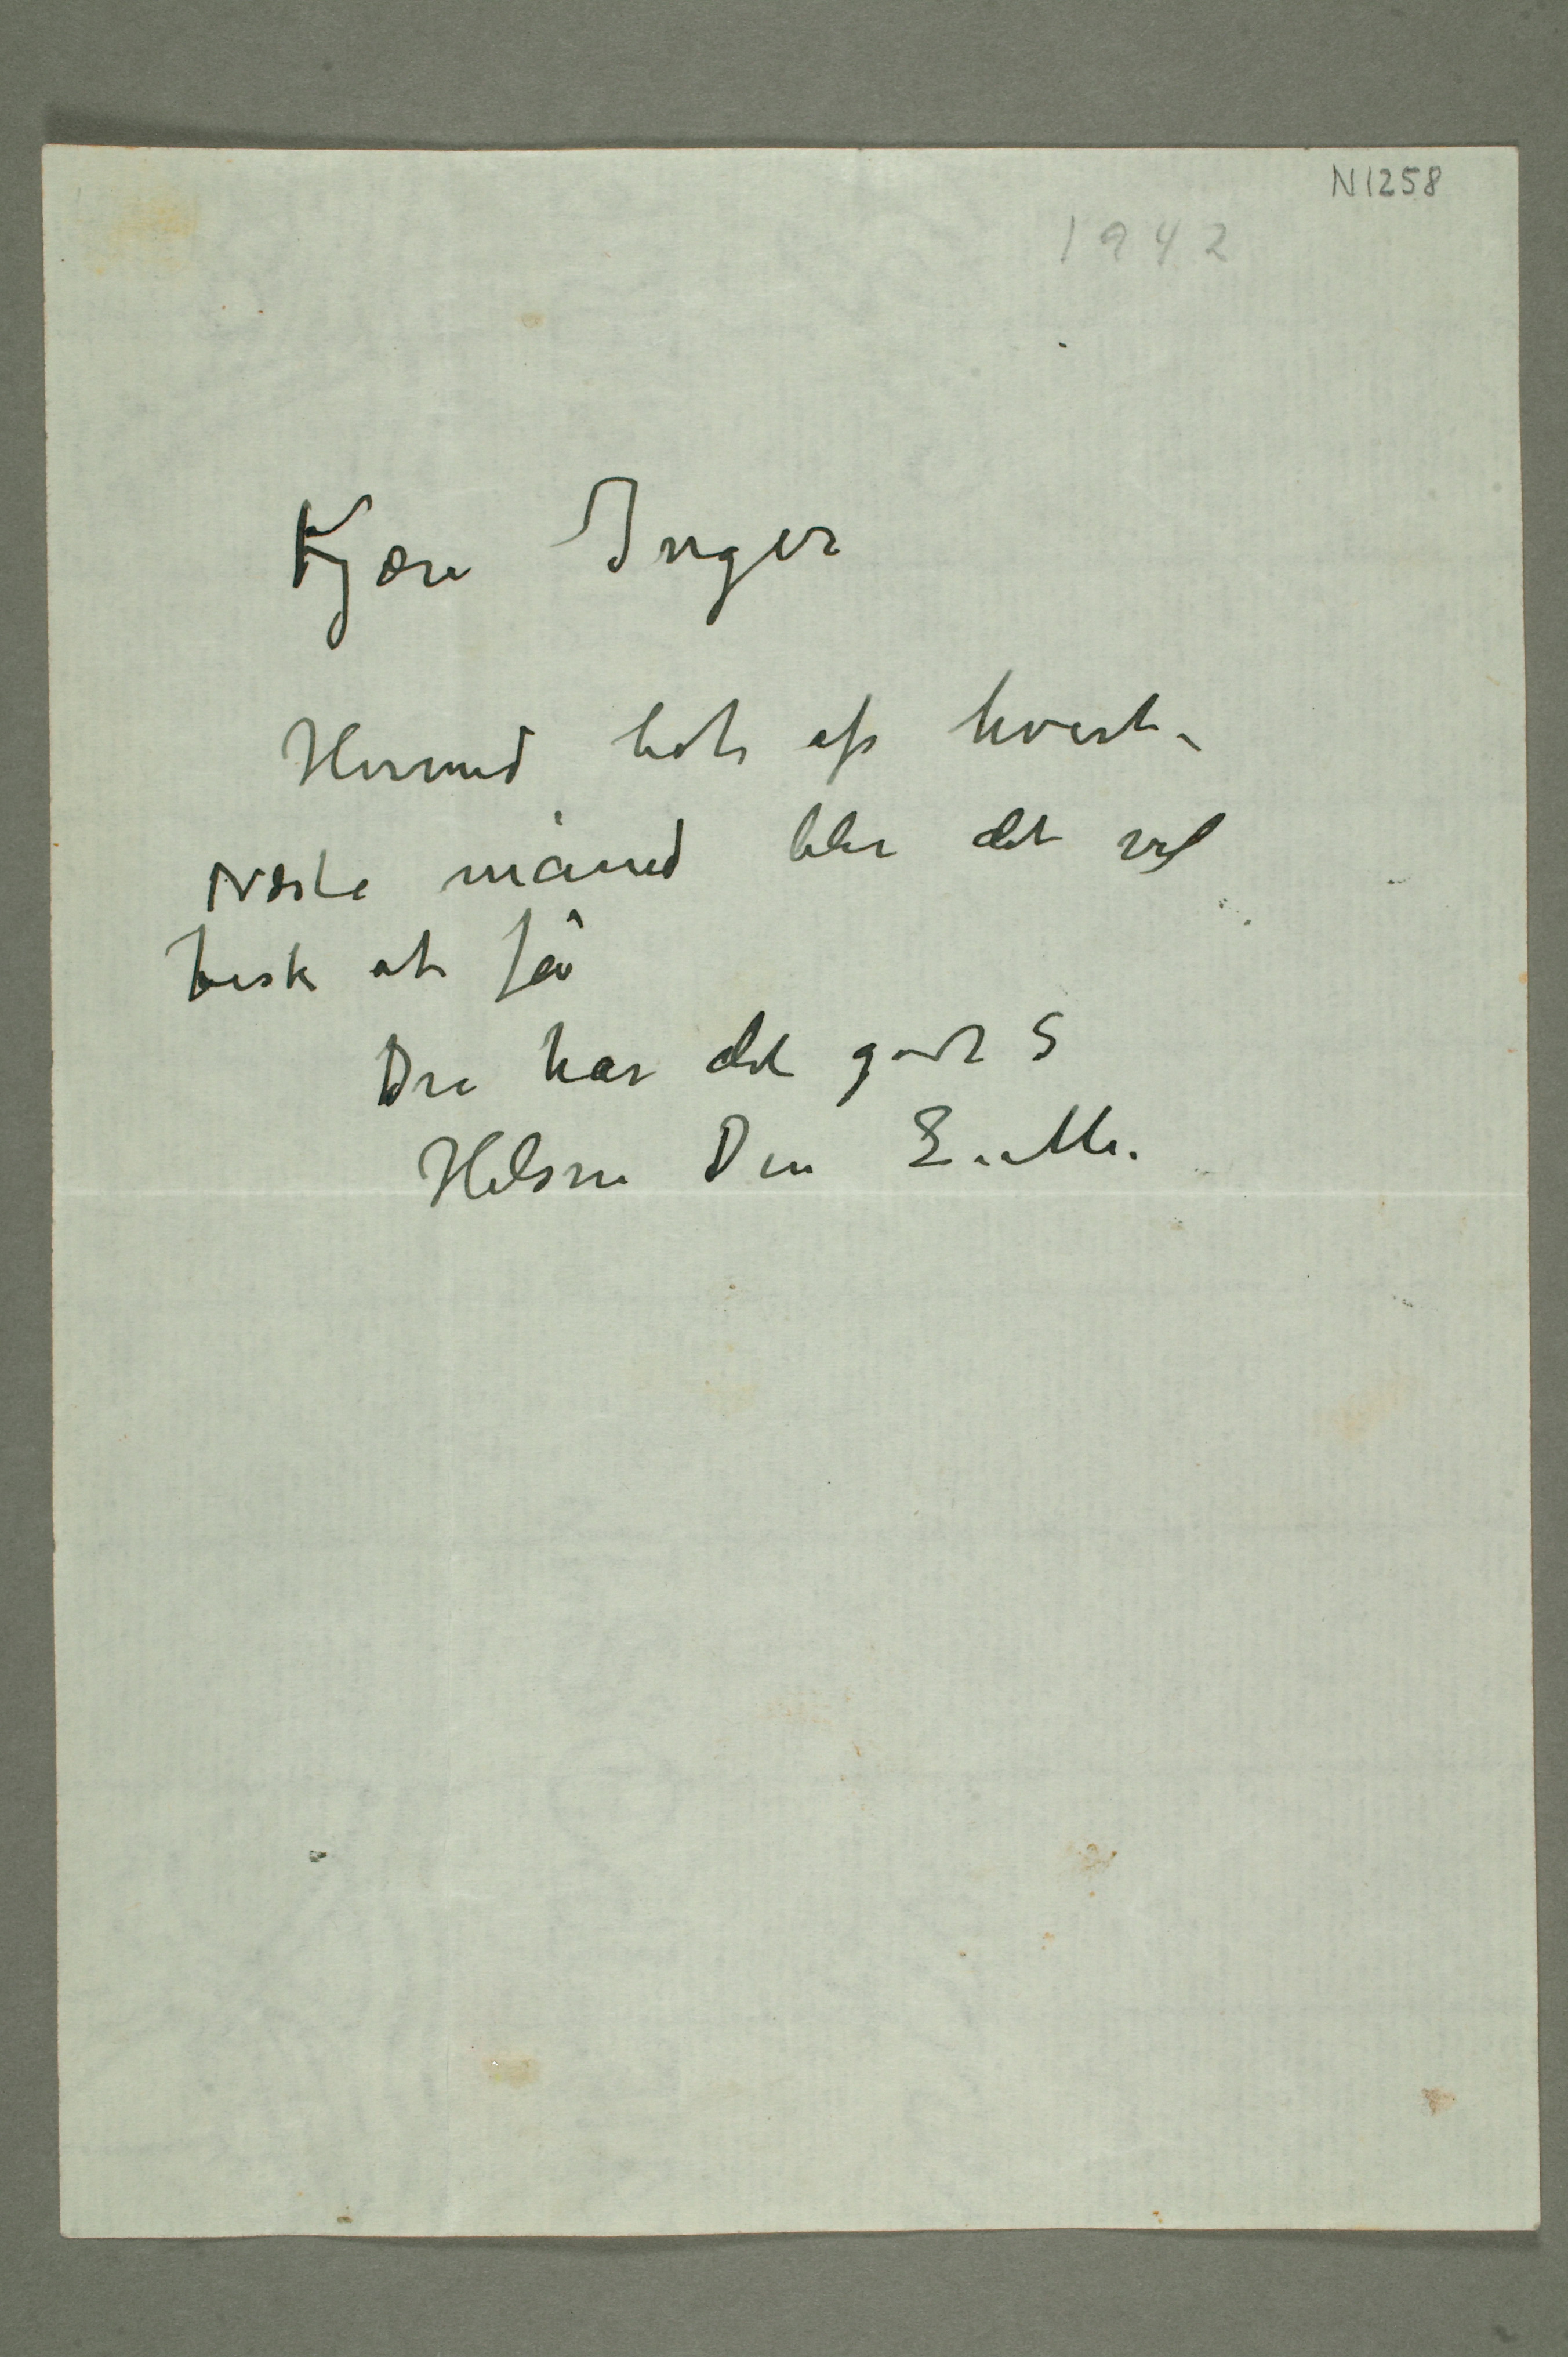 N1258
1942
Kjære Inger
Hermed lidt af hvert –
Næste måned blir det vel
fisk at få
Du har det godt?
Hilsen Din E. M.